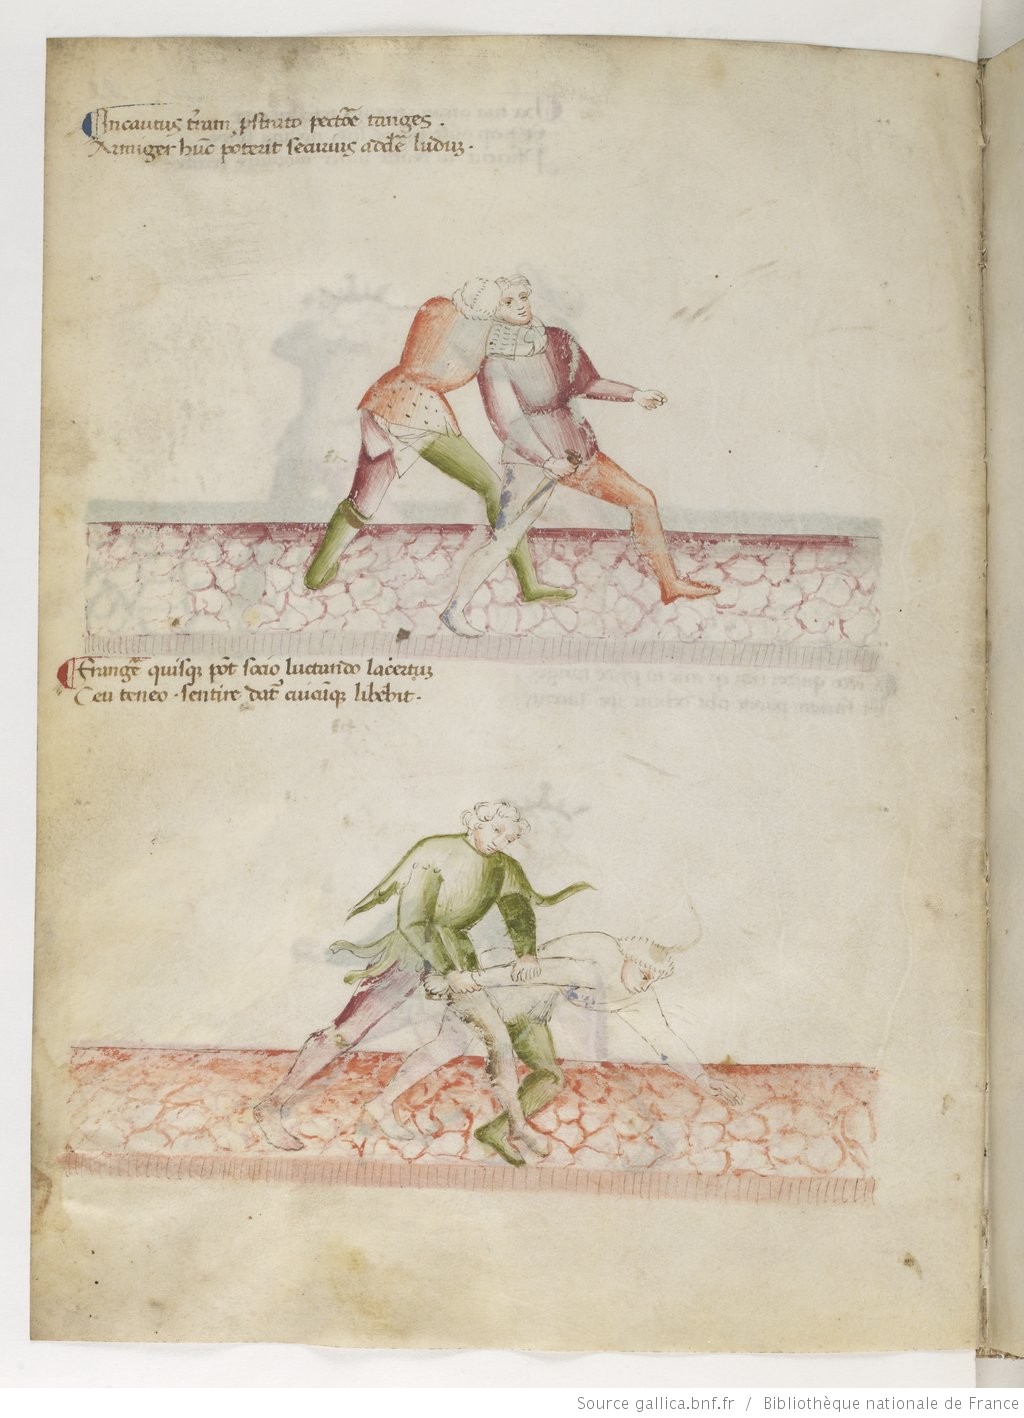 Incautus t̃ram ꝓstrato pectõe tanges .
Armiger hũc poterit securus addẽ ludũ .
Frangẽ quisqꝫ põt socio luctando lacertũ
Ceu teneo . sentire dat̃ cuicũqꝫ libebit .
Source gallica.bnf.fr / Bibliothèque nationale de France